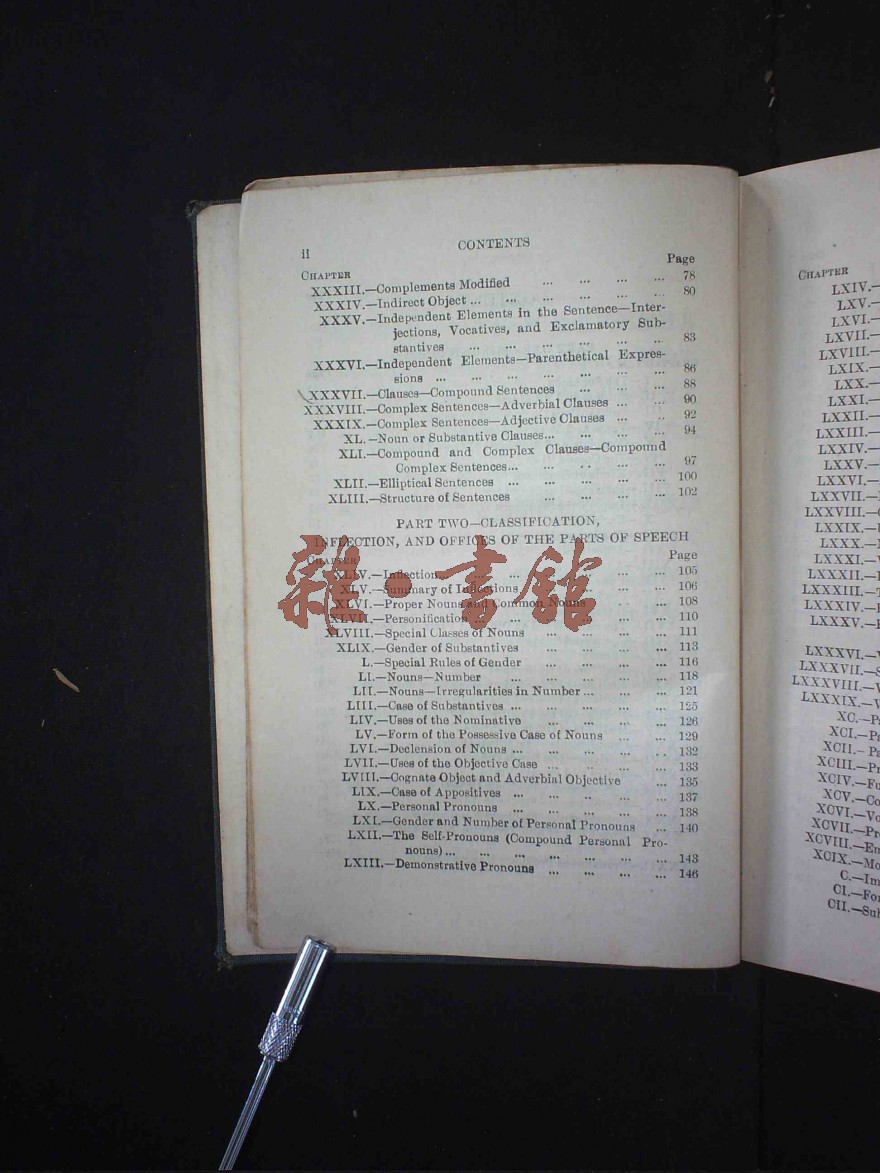 ii
CONTENTS
CHAPTER Page
XXXIII.—Complements Modified ... ... ... ... 78
XXXIV.—Indirect Object ... ... ... ... ... ... 80
XXXV.—Independent Elements in the Sentence—Inter-
jections, Vocatives, and Exclamatory Sub-
stantives ... ... ... ... ... ... 83
XXXVI.—Independent Elements—Parenthetical Expres-
sions ... ... ... ... ... ... ... 86
XXXVII.—Clauses—Compound Sentences ... ... ... 88
XXXVIII.—Complex Sentences—Adverbial Clauses ... ... 90
XXXIX.—Complex Sentences—Adjective Clauses ... .. 92
XL.—Noun or Substantive Clauses... ... ... ... 94
XLI.—Compound and Complex Clauses—Compound
Complex Sentences... ... .. ... ... 97
XLII.—Elliptical Sentences ... ... ... ... ... 100
XLIII.—Structure of Sentences ... ... ... ... 102
PART TWO—CLASSIFICATION,
INFLECTION, AND OFFICES OF THE PARTS OF SPEECH
CHAPTER Page
XLIV.—Inflection... ... ... ... ... ... 105
XLV.—Summary of Inflections ... ... ... 106
XLVI.—Proper Nouns and Common Nouns ... ... 108
XLVII.—Personification ... ... ... ... ... 110
XLVIII.—Special Classes of Nouns ... ... ... ... 111
XLIX.—Gender of Substantives ... ... ... ... 113
L.—Special Rules of Gender ... ... ... ... 116
LI.—Nouns—Number ... ... ... ... ... 118
LII.—Nouns—Irregularities in Number ... ... ... 121
LIII.—Case of Substantives ... ... ... ... ... 125
LIV.—Uses of the Nominative ... ... ... ... 126
LV.—Form of the Possessive Case of Nouns ... ... 129
LVI.—Declension of Nouns ... ... ... ... ... 132
LVII.—Uses of the Objective Case ... ... ... ... 133
LVIII.—Cognate Object and Adverbial Objective ... 135
LIX.—Case of Appositives ... ... .. ... ... 137
LX.—Personal Pronouns ... ... ... ... ... 138
LXI.—Gender and Number of Personal Pronouns ... 140
LXII.—The Self-Pronouns (Compound Personal Pro-
nouns) ... ... ... ... ... ... ... 143
LXIII.—Demonstrative Pronouns ... ... ... ... 146
雜·書館
CHAPTER
LXIV.—
LXV.—
LXVI.—
LXVII.—
LXVIII.—
LXIX.—
LXX.—
LXXI.—
LXXII.—
LXXIII.—
LXXIV.—
LXXV.—
LXXVI.—
LXXVII.—
LXXVIII.—
LXXIX.—
LXXX.—
LXXXI.—
LXXXII.—
LXXXIII.—
LXXXIV.—
LXXXV.—
LXXXVI.—
LXXXVII.—
LXXXVIII.—
LXXXIX.—
XC.—Pa
XCI.—Pa
XCII.—Pa
XCIII.—Pr
XCIV.—Fu
XCV.—Co
XCVI.—Vo
XCVII.—Pr
XCVIII.—Em
XCIX.—Mo
C.—Im
CI.—For
CII.—Sub